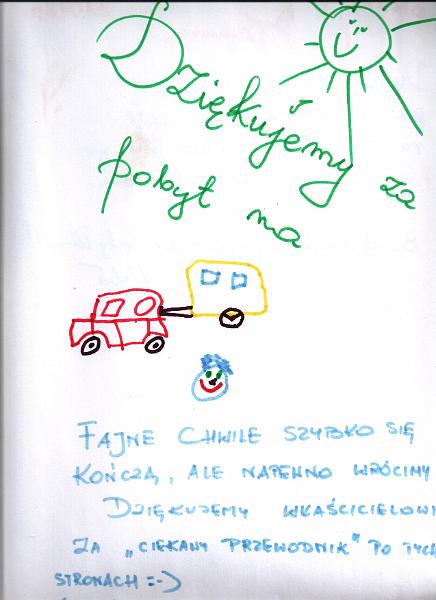 Dziękujemy za
pobyt na
FAJNE CHWILE SZYBKO SIĘ
KOŃCZĄ, ALE NAPEWNO WRÓCIMY
DZIĘKUJEMY WŁAŚCICIELOWI
ZA „CIEKAWY PRZEWODNIK" PO TYCH
STRONACH =-)